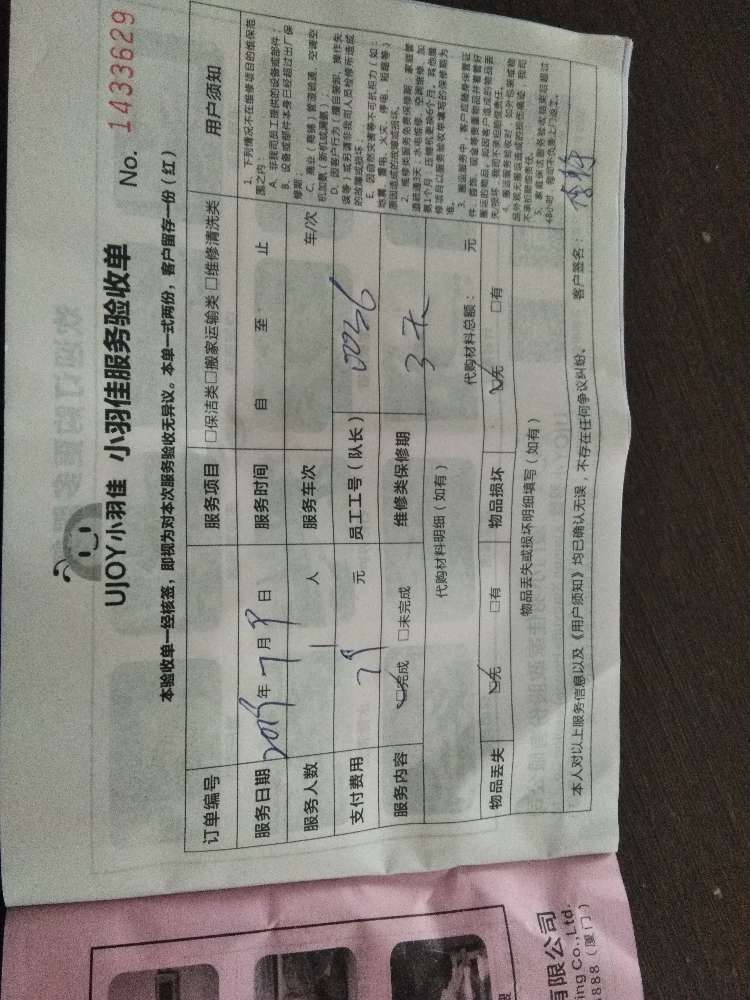 UJOY小羽佳 小羽佳服务验收单
No. 1433629
本验收单一经核签，即视为对本次服务验收无异议。本单一式两份，客户留存一份（红）
订单编号
服务项目 □保洁类□搬家运输类 □维修清洗类
用户须知
服务日期 2019年7月9日
服务时间 自 至 止
服务人数 1人
服务车次 车/次
支付费用 79元
员工工号（队长） 00236
服务内容 ☑完成 □未完成
维修类保修期 3天
代购材料明细（如有） 代购材料总额： 元
物品丢失 ☑无 □有
物品损坏 ☑无 □有
物品丢失或损坏明细填写（如有）
本人对以上服务信息以及《用户须知》均已确认无误，不存在任何争议纠纷。 客户签名：
1. 下列情况不在维修项目的维保范
围之内：
A. 非我司员工提供的设备或部件；
B. 设备或部件本身已经超过出厂保
修期；
D. 因客户行为（擅自装卸、操作失
误等）或另请非我司人员检修所造成
的故障或损坏。
E. 因自然灾害等不可抗拒力（如：
地震、雷电、火灾、停电、短路等）
原因造成的故障或损坏。
有限公司
ing Co.,Ltd.
888（厦门）